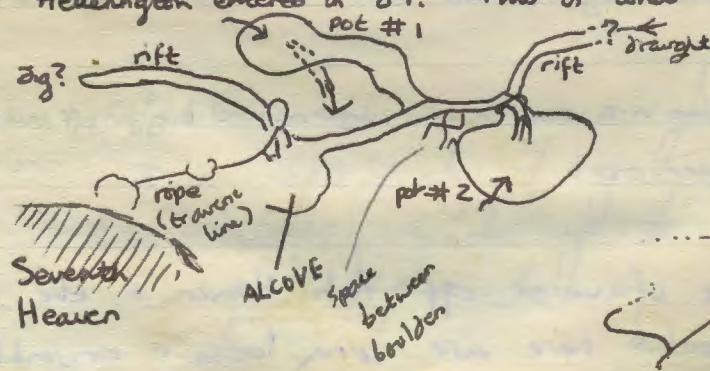 entered
pot #1
rift
dig?
? draught
rift
rope
(traverse
line)
pot #2
Seventh
Heaven
ALCOVE
Space
between
boulders